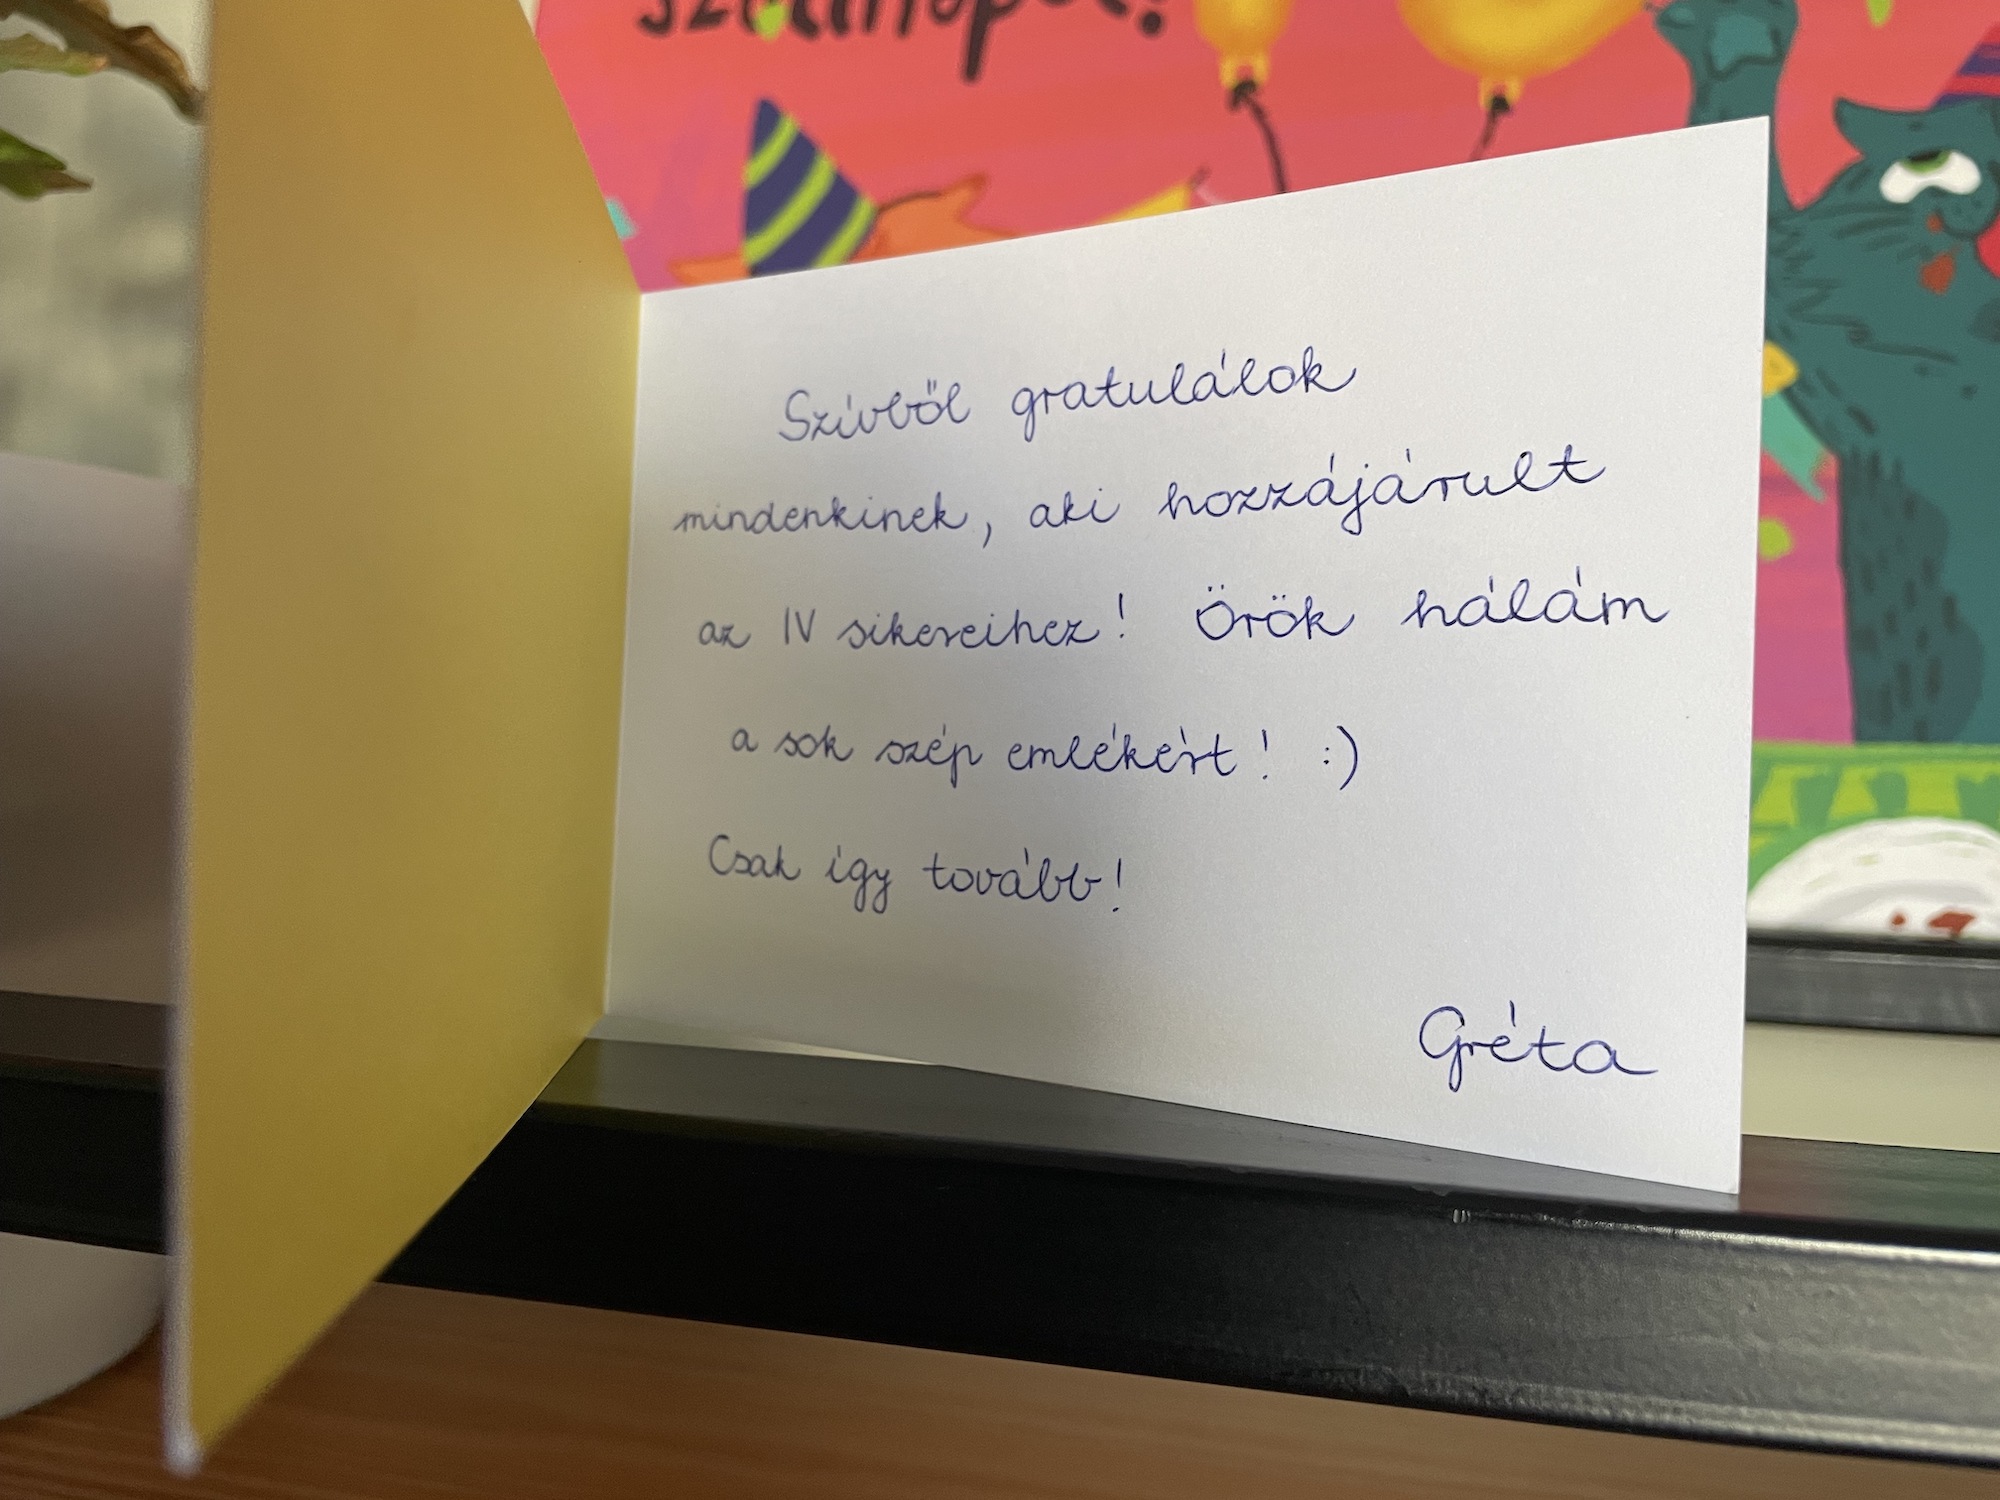 Szívből gratulálok
mindenkinek, aki hozzájárult
az IV sikereihez! Örök hálám
a sok szép emlékért! :)
Csak így tovább!
Gréta